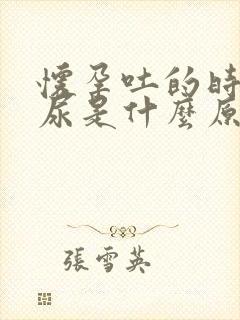 懷孕吐的時
尿是什麼原
張雪英